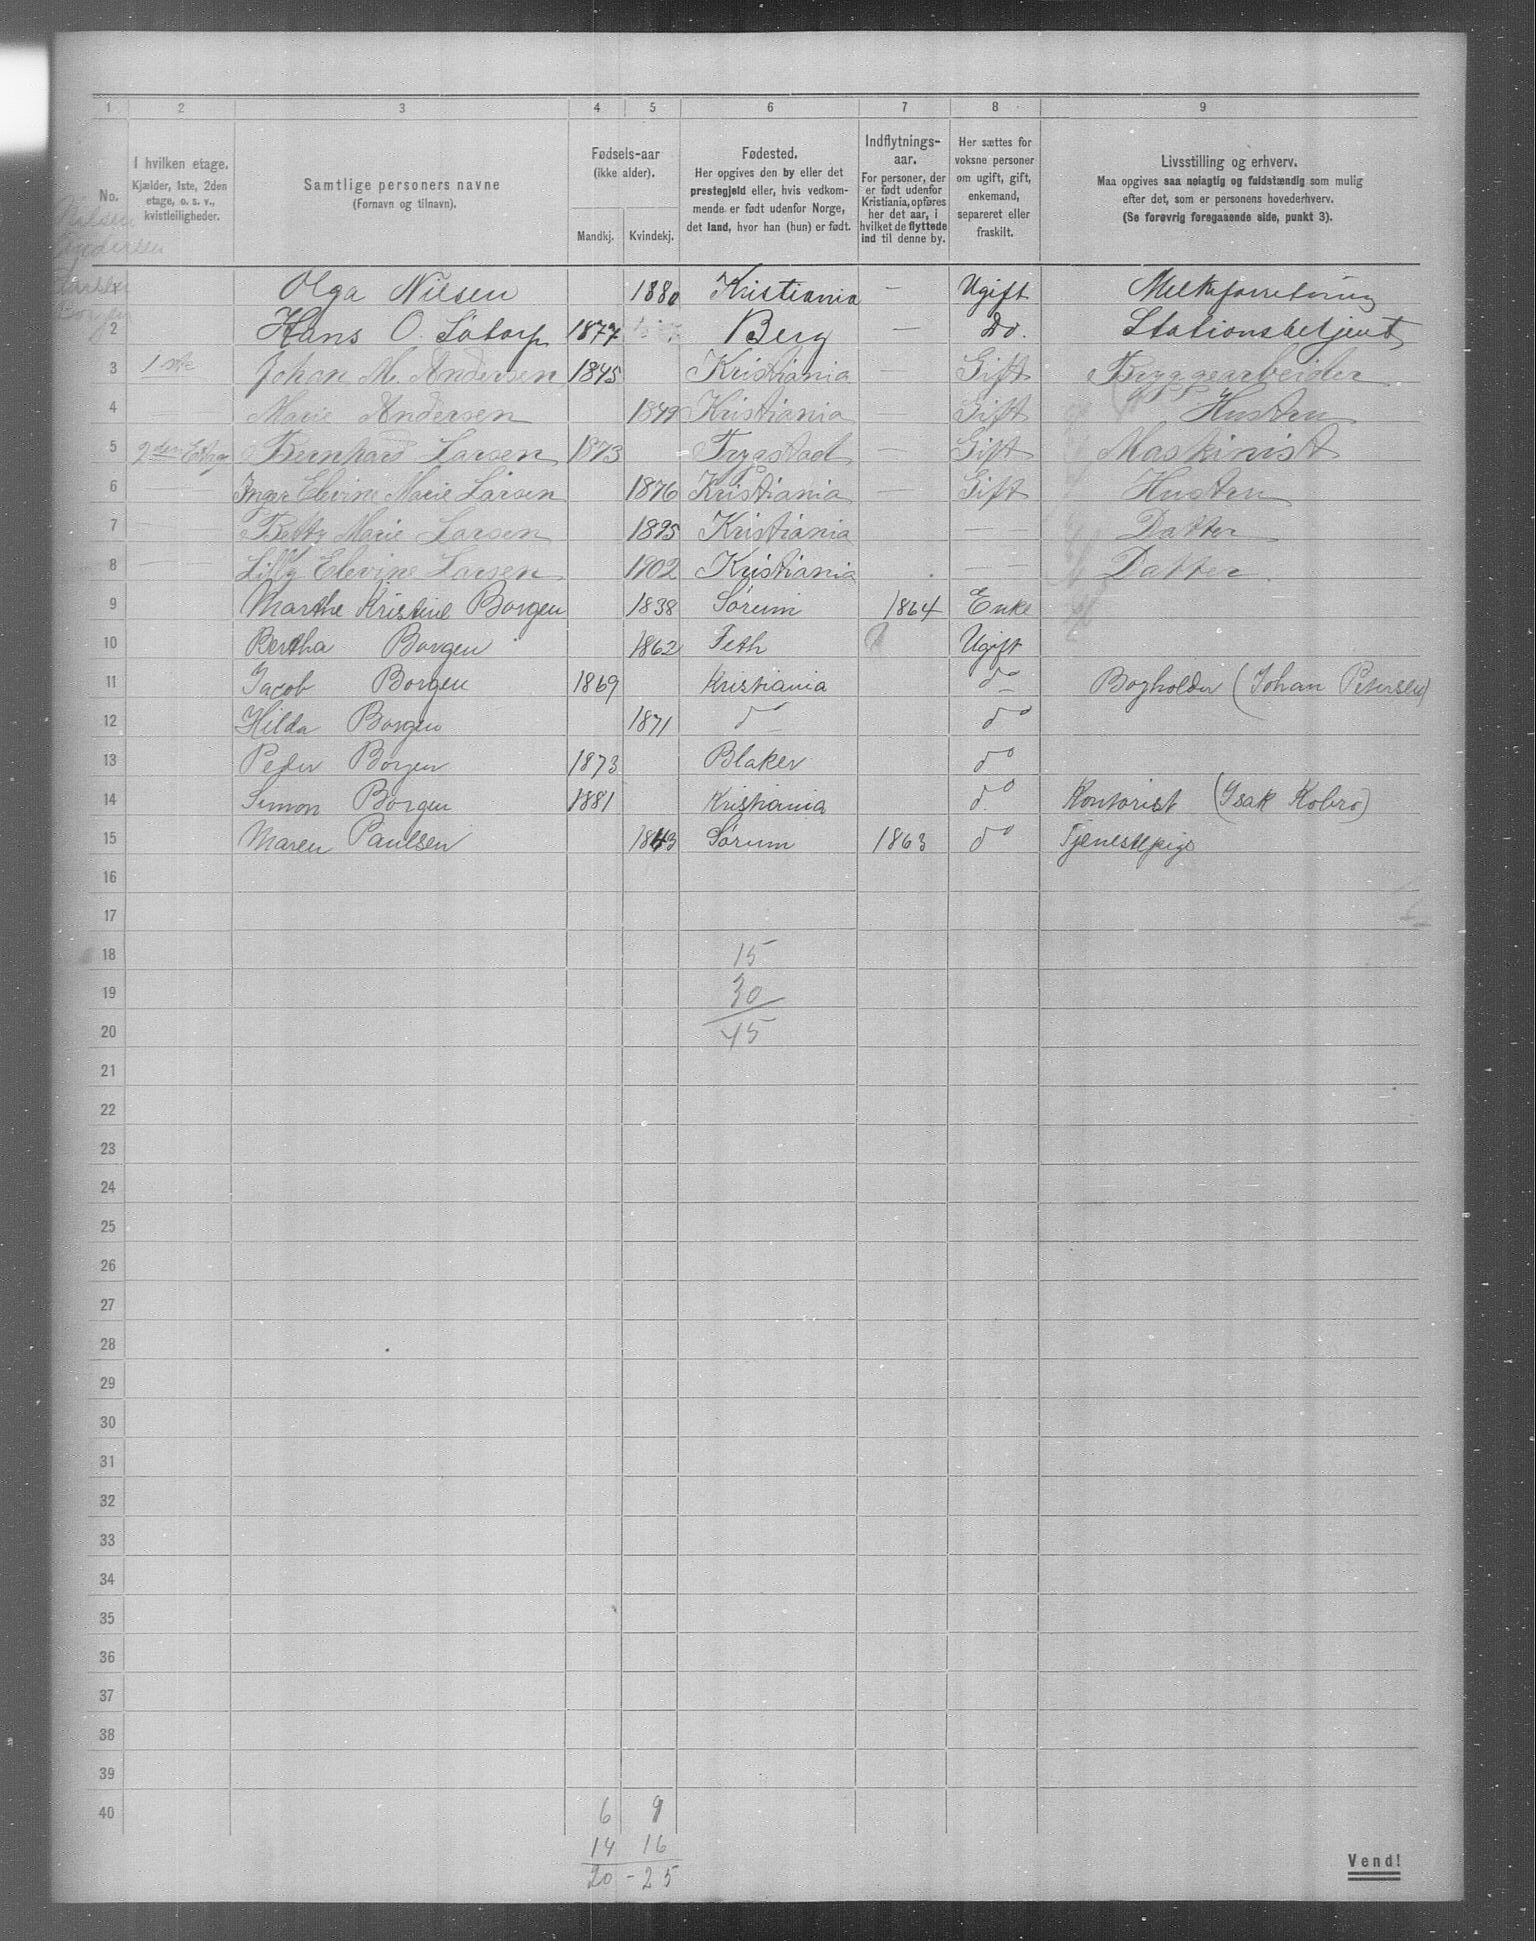 1 2 3 4 5 6 7 8 9
No.
I hvilken etage.
Kjælder, 1ste, 2den
etage, o. s. v.,
kvistleiligheder.
Samtlige personers navne
(Fornavn og tilnavn).
Fødsels-aar
(ikke alder).
Mandkj. Kvindekj.
Fødested.
Her opgives den by eller det
prestegjeld eller, hvis vedkom-
mende er født udenfor Norge,
det land, hvor han (hun) er født.
Indflytnings-
aar.
For personer, der
er født udenfor
Kristiania, opføres
her det aar, i
hvilket de flyttede
ind til denne by.
Her sættes for
voksne personer
om ugift, gift,
enkemand,
separeret eller
fraskilt.
Livsstilling og erhverv.
Maa opgives saa nøiagtig og fuldstændig som mulig
efter det, som er personens hovederhverv.
(Se forøvrig foregaaende side, punkt 3).
Nilsen
Andersen
Borgen
Olga Nilsen 1880 Kristiania — Ugift Melkforretning
2 Hans O. 1877 Berg — Do. Stationsbetjent
3 1ste Johan M. Andersen 1845 Kristiania — Gift Bryggearbeider
4 — Marie Andersen 1849 Kristiania — Gift Hustru
5 2den Etag Bernhard Larsen 1873 Trygstad — Gift Maskinist
6 — Inger Elevine Marie Larsen 1876 Kristiania — Gift Hustru
7 — Betty Marie Larsen 1895 Kristiania — Datter
8 — Lilly Elevine Larsen 1902 Kristiania — Datter
9 Marthe Kristine Borgen 1838 Sørum 1864 Enke
10 Bertha Borgen 1862 Feth Ugift
11 Jacob Borgen 1869 Kristiania do Bogholder (Johan Petersen)
12 Hilda Borgen 1871 do do
13 Peder Borgen 1873 Blaker do
14 Simon Borgen 1881 Kristiania do Kontorist (Isak Kobro)
15 Maren Paulsen 1843 Sørum 1863 do Tjenestepige
16
17
18 15
19 30
20 45
21
22
23
24
25
26
27
28
29
30
31
32
33
34
35
36
37
38
39
40 6 9
14 16
20 - 25
Vend!